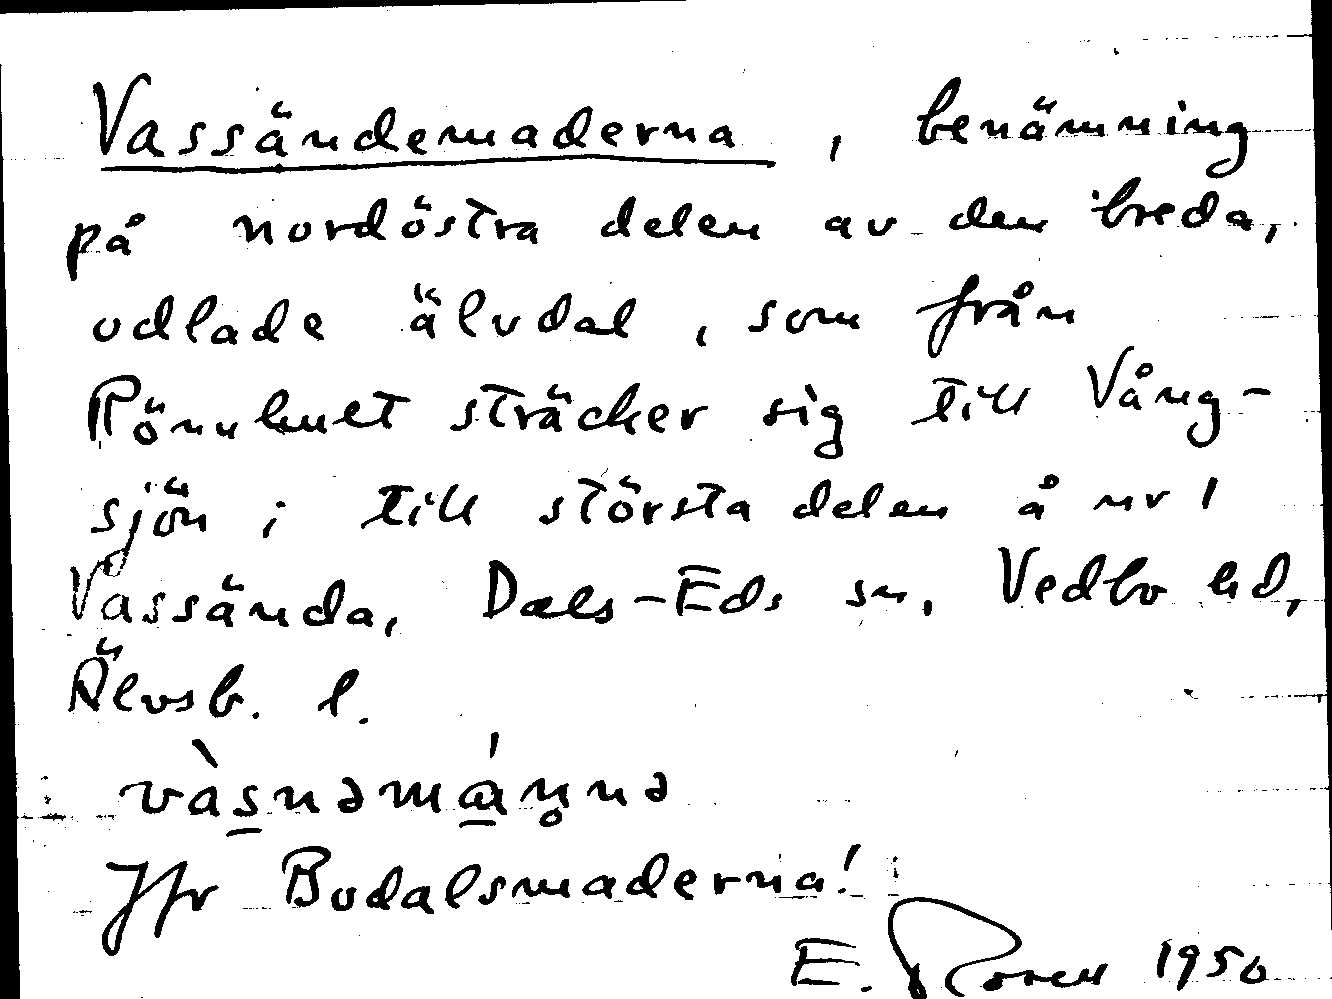 Vassändemaderna, benämning
på nordöstra delen av den breda,
odlade älvdal, som från
Rönnhult sträcker sig till Vång-
sjön i till största delen å nr 1
Vassända, Dals-Eds sn, Vedbo hd,
Älvsb. l.
Jfr Bodalsmaderna!
E. Rosell 1950